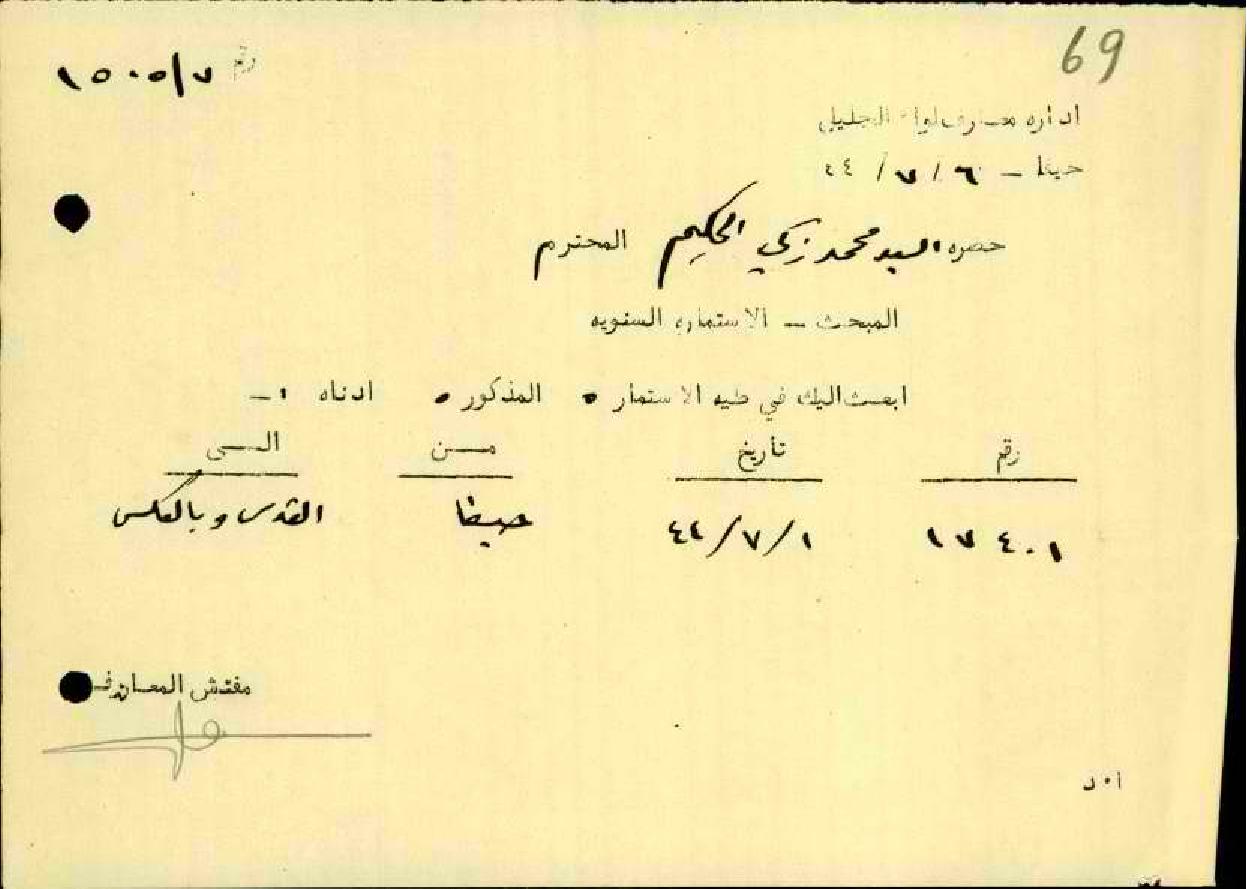 69
رقم ١٥٠٥/٧
اداره معارف لواء الجليل
حيفا – ٦ / ٧ / ٤٤
حضره السيد محمد زكي الحكيم المحترم
المبحث – الاستماره السنويه
ابعث اليك في طيه الاستماره المذكوره ادناه :-
رقم تاريخ مــن الــى
١٧٤٠١ ١/٧/٤٤ حيفا القدس وبالعكس
مفتش المعارف